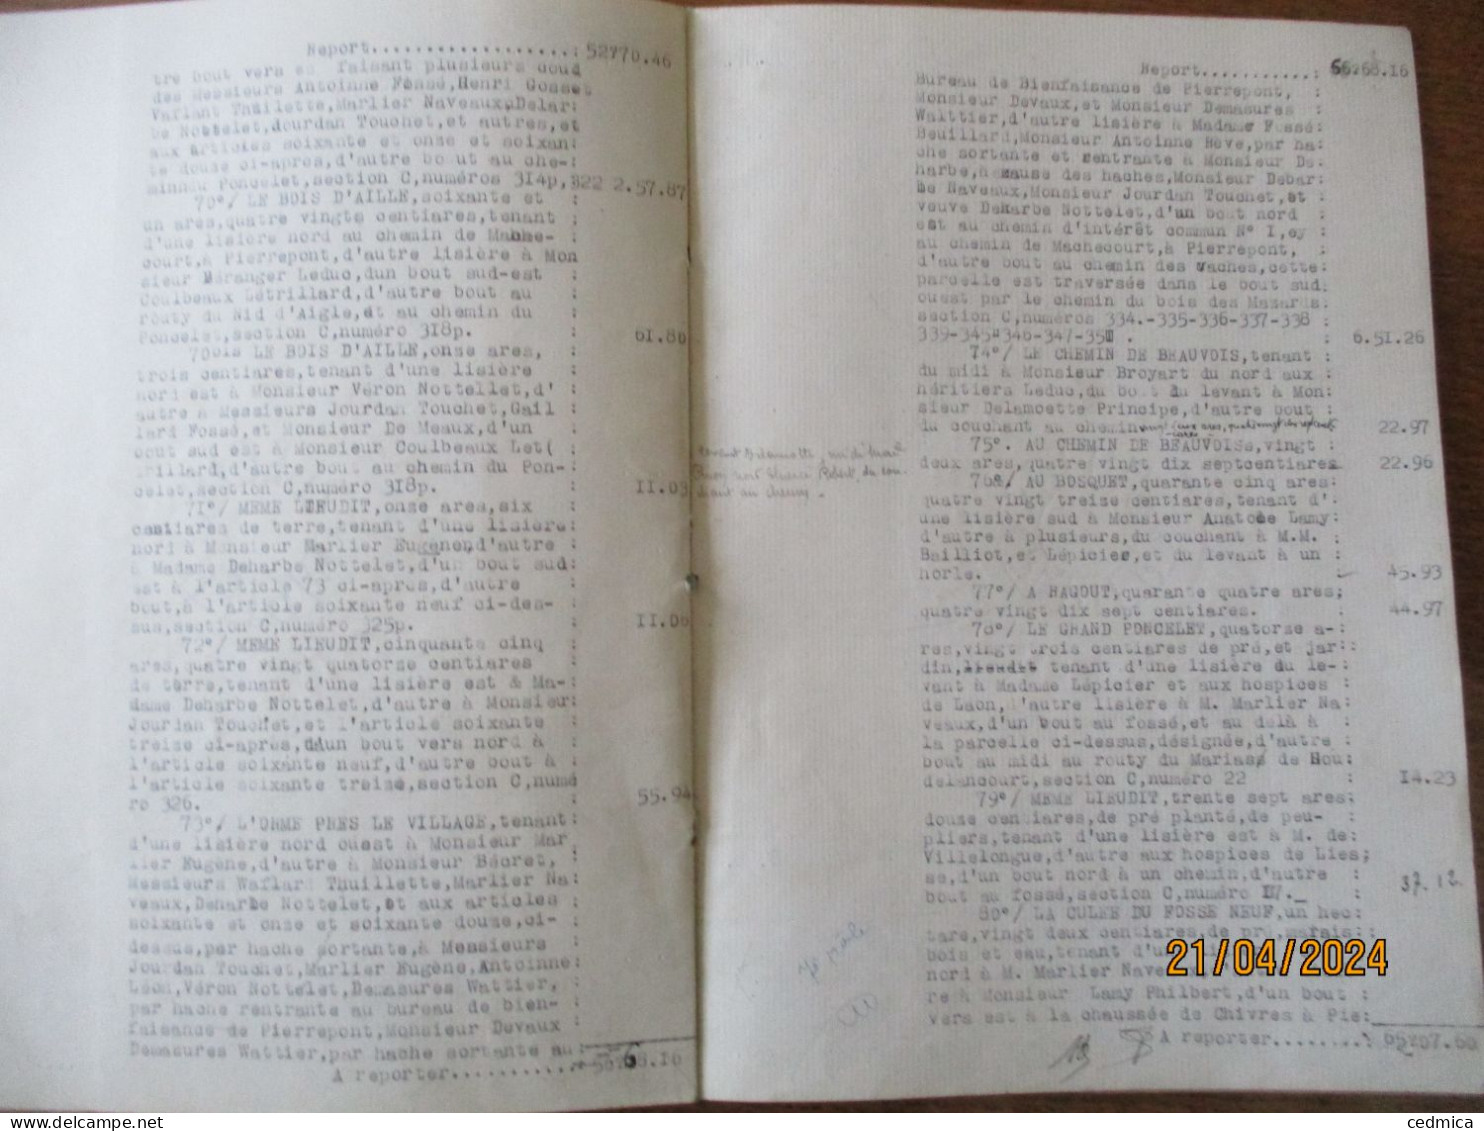 Report...................: 52770.46
tre bout vers es faisant plusieurs coud
des Messieurs Antoinne Fossé,Henri Gosset
Varlant Thuilette,Marlier Naveaux,Delar:
be Nottelet,dourdan Touchet,et autres,et
aux articles soixante et onze et soixan:
te douze ci-apres,d'autre bout au che-:
minneu Poncelet,section C,numéros 314p,322 2.57.87
70°/ LE BOIS D'AILLE,soixante et :
un ares,quatre vingts centiares,tenant :
d'une lisière nord au chemin de Mache- :
court,à Pierrepont,d'autre lisière à Mon
sieur Béranger Leduc,dun bout sud-est :
Coulbeaux Létrillard,d'autre bout au :
routy du Nid d'Aigle,et au chemin du :
Poncelet,section C,numéro 318p. : 61.80
70bis LE BOIS D'AILLE,onse ares, :
trois centiares,tenant d'une lisière :
nord est à Monsieur Véron Nottellet,d' :
autre à Messieurs Jourdan Touchet,Gail :
lard Fossé,et Monsieur De Meaux,d'un :
bout sud est à Monsieur Coulbeaux Let( :
trillard,d'autre bout au chemin du Pon- :
celet,section C,numéro 318p. : 11.03
71°/ MEME LIEUDIT,onze ares,six :
centiares de terre,tenant d'une lisière:
nord à Monsieur Marlier Eugène,d'autre :
à Madame Deharbe Nottelet,d'un bout sud:
est à l'article 73 ci-apres,d'autre :
bout,à l'article soixante neuf ci-des- :
sus,section C,numéro 325p. : 11.06
72°/ MEME LIEUDIT,cinquante cinq :
ares,quatre vingt quatorze centiares :
de terre,tenant d'une lisière est à Ma- :
dame Deharbe Nottelet,d'autre à Monsieur:
Jourdan Touchet,et l'article soixante :
treize ci-apres,d'un bout vers nord à :
l'article soixante neuf,d'autre bout à :
l'article soixante treize,section C,numé
ro 326. : 55.94
73°/ L'ORME PRES LE VILLAGE,tenant:
d'une lisière nord ouest à Monsieur Mar
lier Eugène,d'autre à Monsieur Bécret, :
Messieurs Waflard Thuillette,Marlier Na:
veaux,Deharbe Nottelet,et aux articles :
soixante et onze et soixante douze,ci- :
dessus,par hache sortante,à Messieurs :
Jourdan Touchet,Marlier Eugène,Antoinne:
Léon,Véron Nottelet,Demasures Wattier, :
par hache rentrante au bureau de bien- :
faisance de Pierrepont,Monsieur Devaux :
Demasures Wattier,par hache sortante au:
A reporter............
Report...........:
Bureau de Bienfaisance de Pierrepont, :
Monsieur Devaux,et Monsieur Demasures :
Walttier,d'autre lisière à Madame Fossé:
Beuillard,Monsieur Antoinne Hève,par ha:
che sortante et rentrante à Monsieur De:
harbe,à cause des haches,Monsieur Debar:
be Naveaux,Monsieur Jourdan Touchet,et :
veuve Deharbe Nottelet,d'un bout nord :
est au chemin d'intérêt commun N° 1,ey :
au chemin de Machecourt,à Pierrepont, :
d'autre bout au chemin des vaches,cette:
parcelle est traversée dans le bout sud:
ouest par le chemin du bois des Mazards:
section C,numéros 334.-335-336-337-338 :
339-345-346-347-35 . : 6.51.26
74°/ LE CHEMIN DE BEAUVOIS,tenant :
du midi à Monsieur Broyart du nord aux :
héritiers Leduc,du bout du levant à Mon:
sieur Delamoette Principe,d'autre bout :
du couchant au chemin 22.97
75°. AU CHEMIN DE BEAUVOISs,vingt :
deux ares,quatre vingt dix septcentiares 22.96
76&/ AU BOSQUET,quarante cinq ares:
quatre vingt treize centiares,tenant d':
une lisière sud à Monsieur Anatole Lamy:
d'autre à plusieurs,du couchant à M.M. :
Bailliot,et Lépicier,et du levant à un :
horle. 45.93
77°/ A HAGOUT,quarante quatre ares;
quatre vingt dix sept centiares. : 44.97
78°/ LE GRAND PONCELET,quatorze a-:
res,vingt trois centiares de pré,et jar:
din,lieudit tenant d'une lisière du le-:
vant à Madame Lépicier et aux hospices :
de Laon,d'autre lisière à M. Marlier Na:
veaux,d'un bout au fossé,et au delà à :
la parcelle ci-dessus,désignée,d'autre :
bout au midi au routy du Mariase de Hou:
delancourt,section C,numéro 22 : 14.23
79°/ MEME LIEUDIT,trente sept ares:
douze centiares,de pré planté,de peu- :
pliers,tenant d'une lisière est à M. de:
Villelongue,d'autre aux hospices de Lies;
se,d'un bout nord à un chemin,d'autre : 37.12
bout au fossé,section C,numéro 17._ :
80°/ LA CULEE DU FOSSE NEUF,un hec:
tare,vingt deux centiares,de pré,marais::
bois et eau,tenant
nord à M. Marlier
re à Monsieur Lamy Philbert,d'un bout :
vers est à la chaussée de Chivres à Pie:
A reporter........:
21/04/2024
cedmica